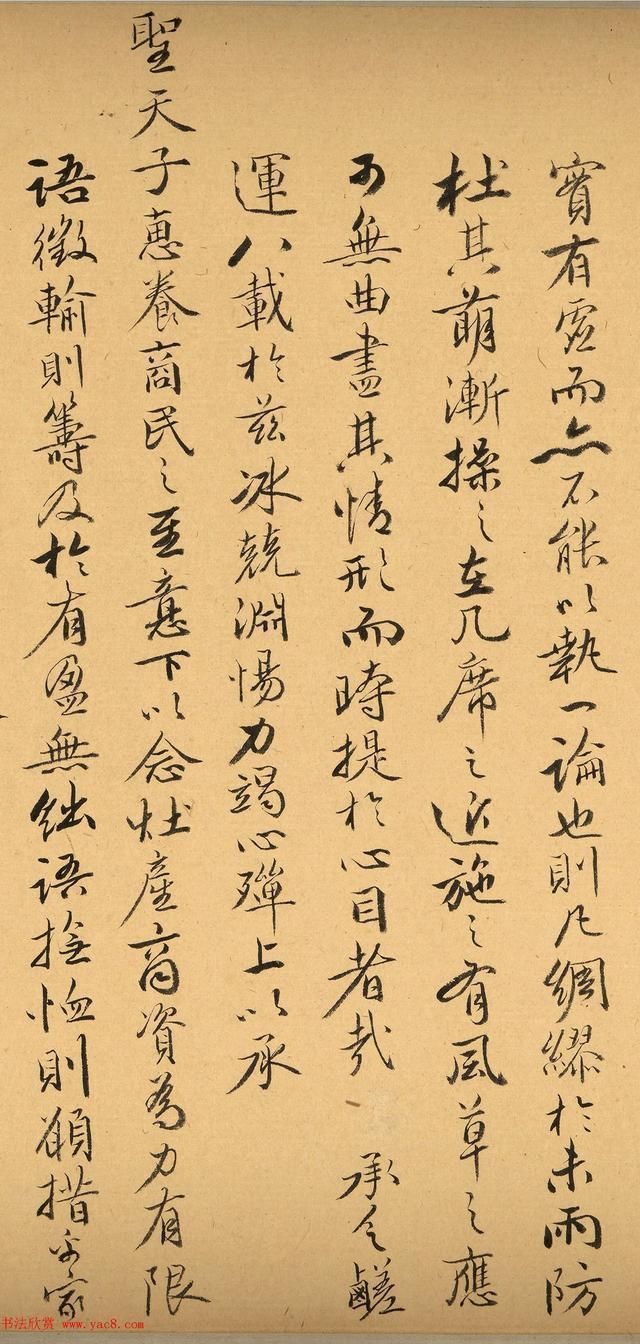 實有虛而亦不能以執一論也則凡綢繆於未雨防
杜其萌漸操之在几席之近施之有風草之應
可無曲盡其情形而時提於心目者哉 承乏鹺
運八載於茲冰兢淵惕力竭心殫上以承
聖天子惠養商民之至意下以念灶產商資為力有限
語徵輸則籌及於有盈無絀語撫恤則願措乎家
书法欣赏 www.yac8.com